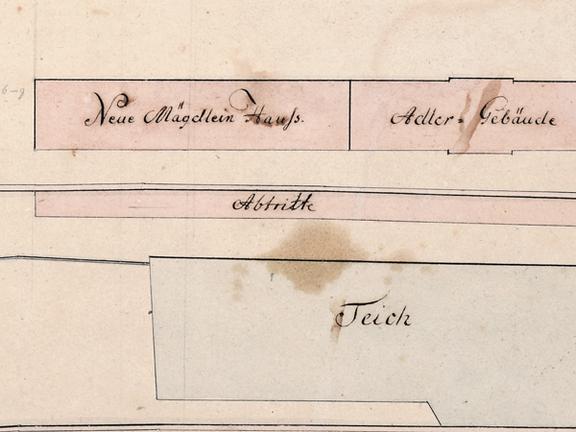 Neue Mägdlein Hauſs.
Adler-Gebäude
Abtritte
Teich